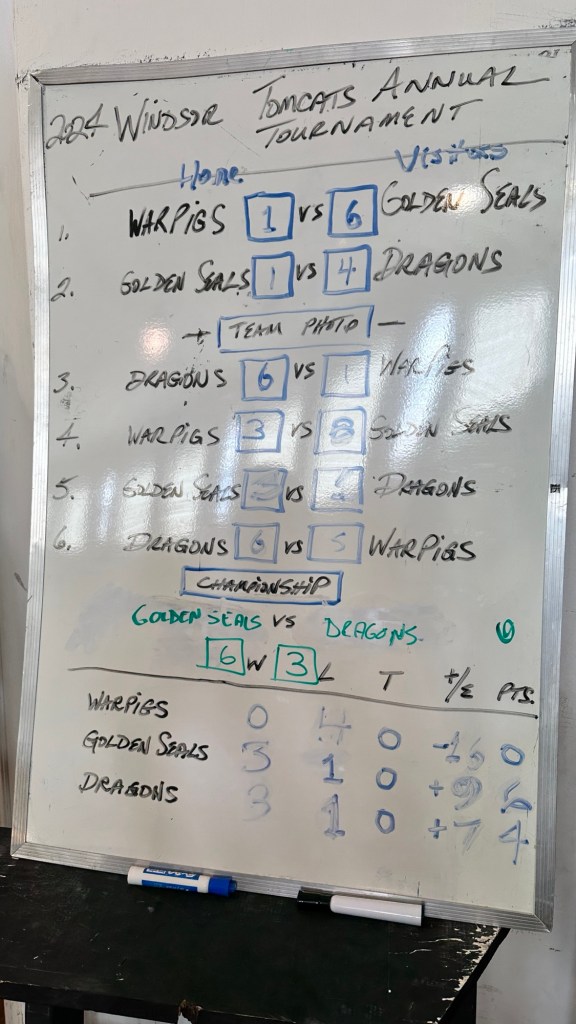 2024 WINDSOR TOMCATS ANNUAL TOURNAMENT
Home Visitors
1. WARPIGS 1 VS 6 GOLDEN SEALS
2. GOLDEN SEALS 1 VS 4 DRAGONS
TEAM PHOTO
3. DRAGONS 6 VS 1 WARPIGS
4. WARPIGS 3 VS 8 GOLDEN SEALS
5. GOLDEN SEALS VS DRAGONS
6. DRAGONS 6 VS 5 WARPIGS
CHAMPIONSHIP
GOLDEN SEALS VS DRAGONS.
6 W 3 L T +/- PTS.
WARPIGS 0 4 0 0
GOLDEN SEALS 3 1 0 +9
DRAGONS 3 1 0 +7 4